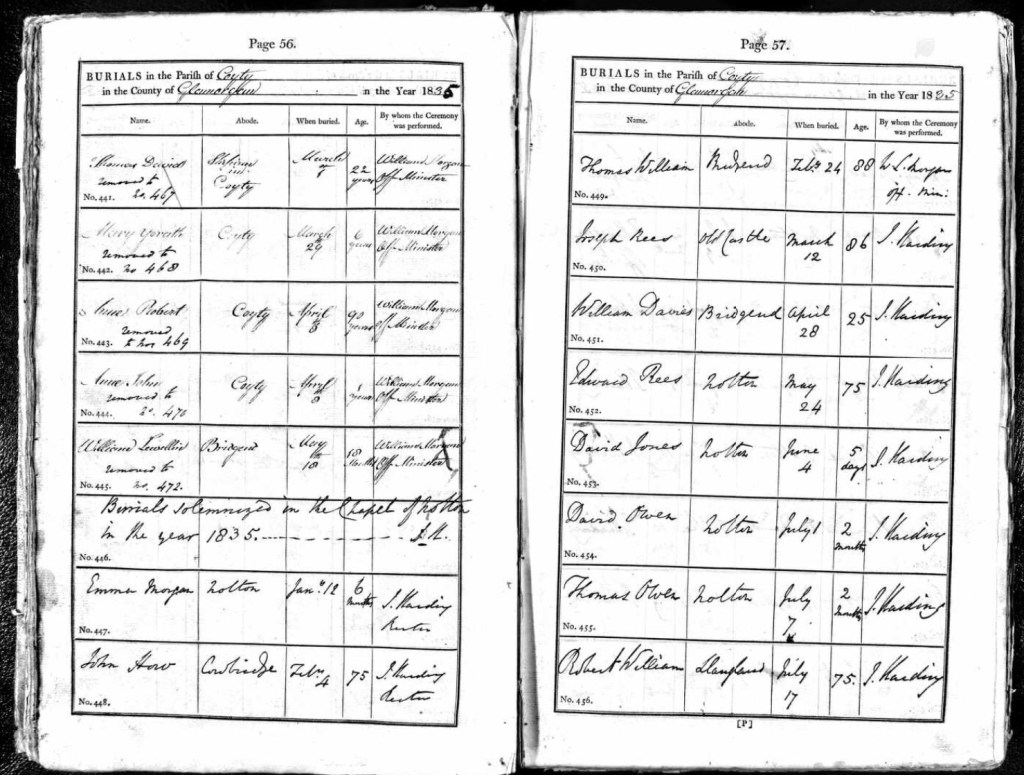 Page 56.
BURIALS in the Parish of Coyty
in the County of Glamorgan in the Year 1835
Name. Abode. When buried. Age. By whom the Ceremony was performed.
Thomas David Coyty March 22 years William Morgan Off Minister
removed to
No. 441. no. 467
Mary Yorath Coyty March 29 6 years William Morgan Off Minister
removed to
No. 442. no 468
Anne Robert Coyty April 8 90 years William Morgan Off Minister
removed
No. 443. to No 469
Anne John Coyty April 8 1 years William Morgan Off Minister
removed to
No. 444. no. 470
William Lewellin Bridgend May 18 18 William Morgan Off Minister
removed to
No. 445. no. 472.
Burials solemnized in the Chapel of Nolton
in the year 1835.
No. 446.
Emma Morgan Nolton Jany. 12 6 months J. Harding Rector
No. 447.
John How Cowbridge Feby. 4 75 J. Harding Rector
No. 448.
Page 57.
BURIALS in the Parish of Coyty
in the County of Glamorgan in the Year 1835
Name. Abode. When buried. Age. By whom the Ceremony was performed.
Thomas William Bridgend Feby. 24 88 W L Morgan Off. Min:
No. 449.
Joseph Rees Old Castle March 12 86 J. Harding
No. 450.
William Davies Bridgend April 28 25 J. Harding
No. 451.
Edward Rees Nolton May 24 75 J. Harding
No. 452.
David Jones Nolton June 4 5 days J. Harding
No. 453.
David Owen Nolton July 1 2 months J. Harding
No. 454.
Thomas Owen Nolton July 7 2 months J. Harding
No. 455.
Robert William Llangland July 17 75. J. Harding
No. 456.
[P]